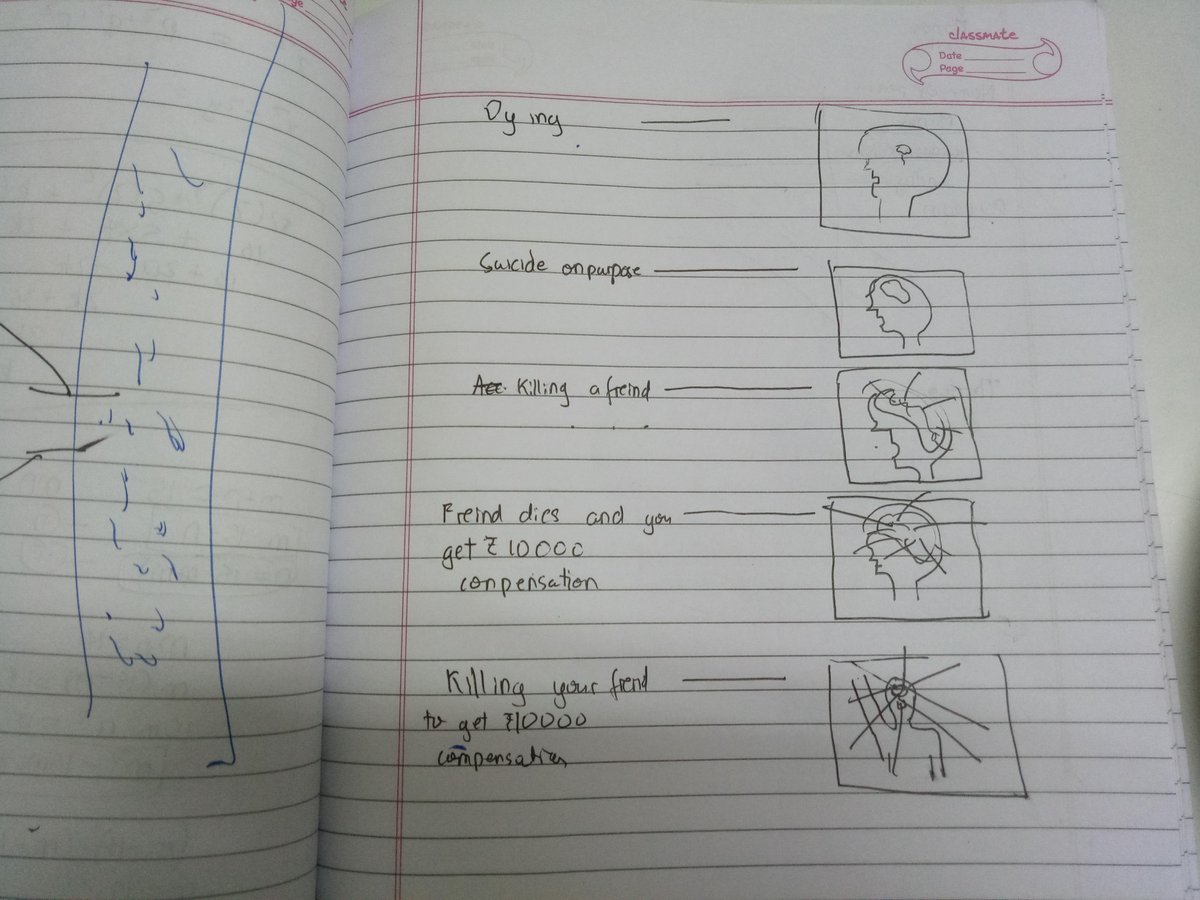 classmate
Date
Page
Dying
Suicide onpurpose
Killing a freind
Freind dies and you
get ₹10000
conpensation
Killing your freind
to get ₹10000
compensation